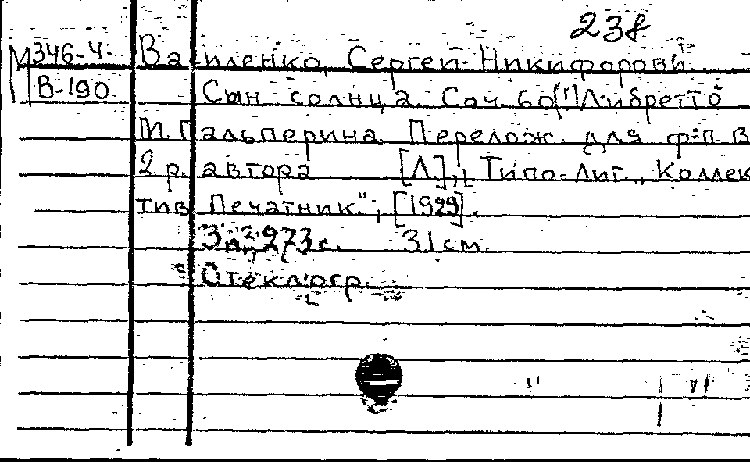 238
М 346-4. Василенко, Сергей Никифорови
В-190. Сын солнца. Соч. 60[!] Либретто
М. Гальперина. Перелож. для ф-п в
2 р. автора [Л.], Типо-Лит., Коллек
тив Печатник", [1929].
273 с. 31 см.
Стеклогр.